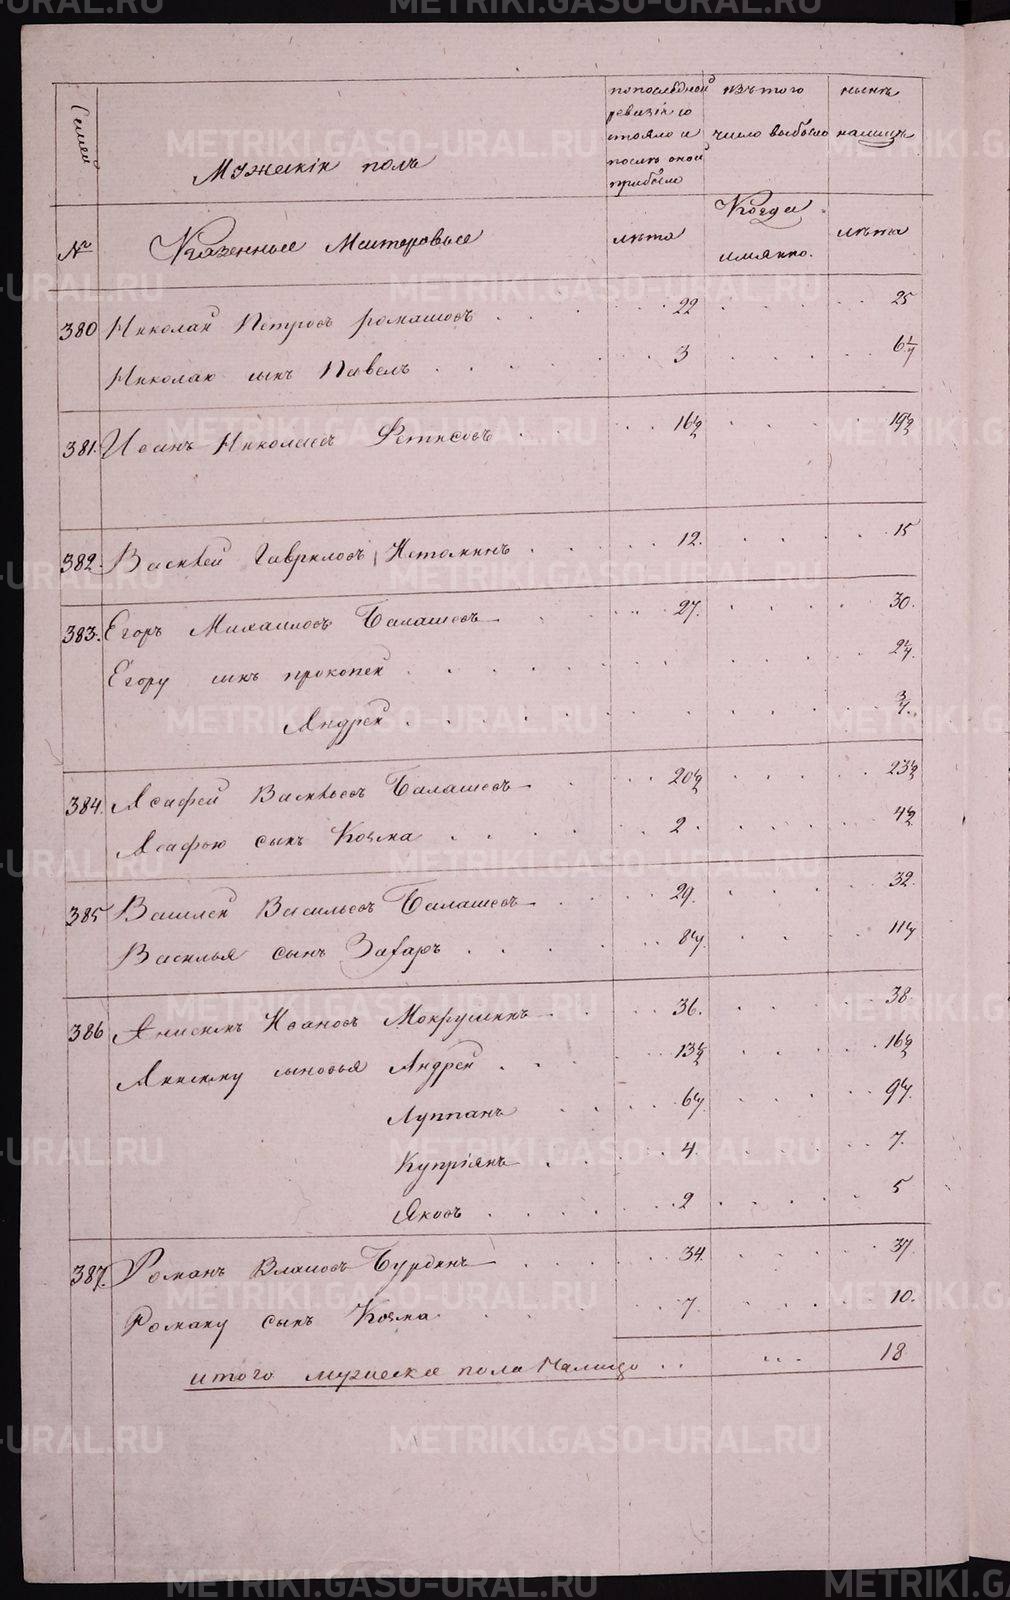 Семей
Мужескiй полъ
по последней
ревизiи со
стояло и
после оной
прибыло
изъ того
число выбыло
ныне
налицо
№
Казенные Мастеровые
лета
Когда
имянно.
лета
380 Николай Петровъ Ромашовъ 22 25
Николаю сынъ Павелъ 3 6 1/4
381. Иванъ Николаевъ Фетисовъ 16 1/2 19 1/2
382. Василей Гавриловъ Истоминъ 12. 15
383. Егоръ Михаиловъ Балашевъ 27. 30.
Егору сынъ прокопей 2 1/4.
Андрей 3/4.
384. Асафей Васильевъ Балашевъ 20 1/2 23 1/2
Асафью сынъ Козма 2. 4 1/2
385 Василей Васильевъ Балашевъ 29. 32.
Василья сынъ Захаръ 8 1/4. 11 1/4
386 Анисимъ Ивановъ Мокрушинъ 36. 38
Анисиму сыновья Андрей 13 1/2 16 1/2
Луппанъ 6 1/4. 9 1/4.
Купрiянъ 4. 7.
Яковъ 2 5
387. Романъ Власовъ Бурдинъ 34. 37.
Роману сынъ Козма 7. 10.
итого мужеска пола Налицо 18
METRIKI.GASO-URAL.RU